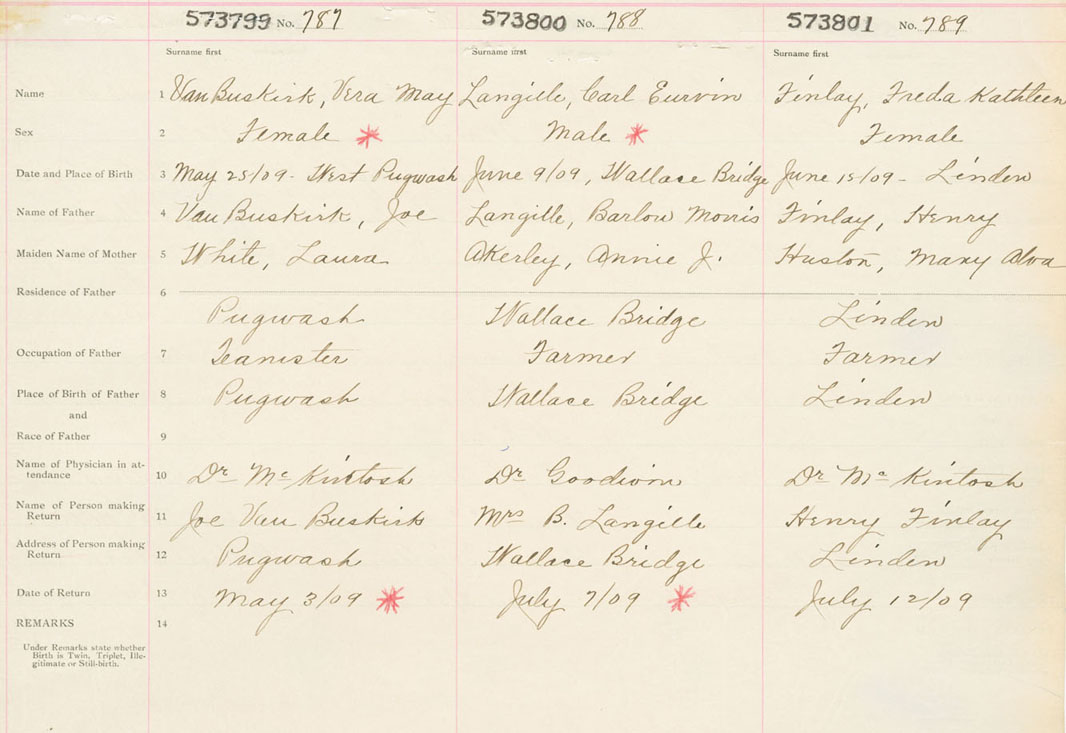 573799 No. 787 573800 No. 788 573801 No. 789
Surname first Surname first Surname first
Name 1 Van Buskirk, Vera May Langille, Carl Eurvin Finlay, Freda Kathleen
Sex 2 Female Male Female
Date and Place of Birth 3 May 25/09 - West Pugwash June 9/09, Wallace Bridge June 15/09 - Linden
Name of Father 4 Van Buskirk, Joe Langille, Barlow Morris Finlay, Henry
Maiden Name of Mother 5 White, Laura Akerley, Annie J. Huston, Mary Alva
Residence of Father 6
Pugwash Wallace Bridge Linden
Occupation of Father 7 Teamster Farmer Farmer
Place of Birth of Father 8 Pugwash Wallace Bridge Linden
and
Race of Father 9
Name of Physician in at-
tendance 10 Dr McKintosh Dr Goodwin Dr McKintosh
Name of Person making
Return 11 Joe Van Buskirk Mrs B. Langille Henry Finlay
Address of Person making
Return 12 Pugwash Wallace Bridge Linden
Date of Return 13 May 3/09 July 7/09 July 12/09
REMARKS 14
Under Remarks state whether
Birth is Twin, Triplet, Ille-
gitimate or Still-birth.